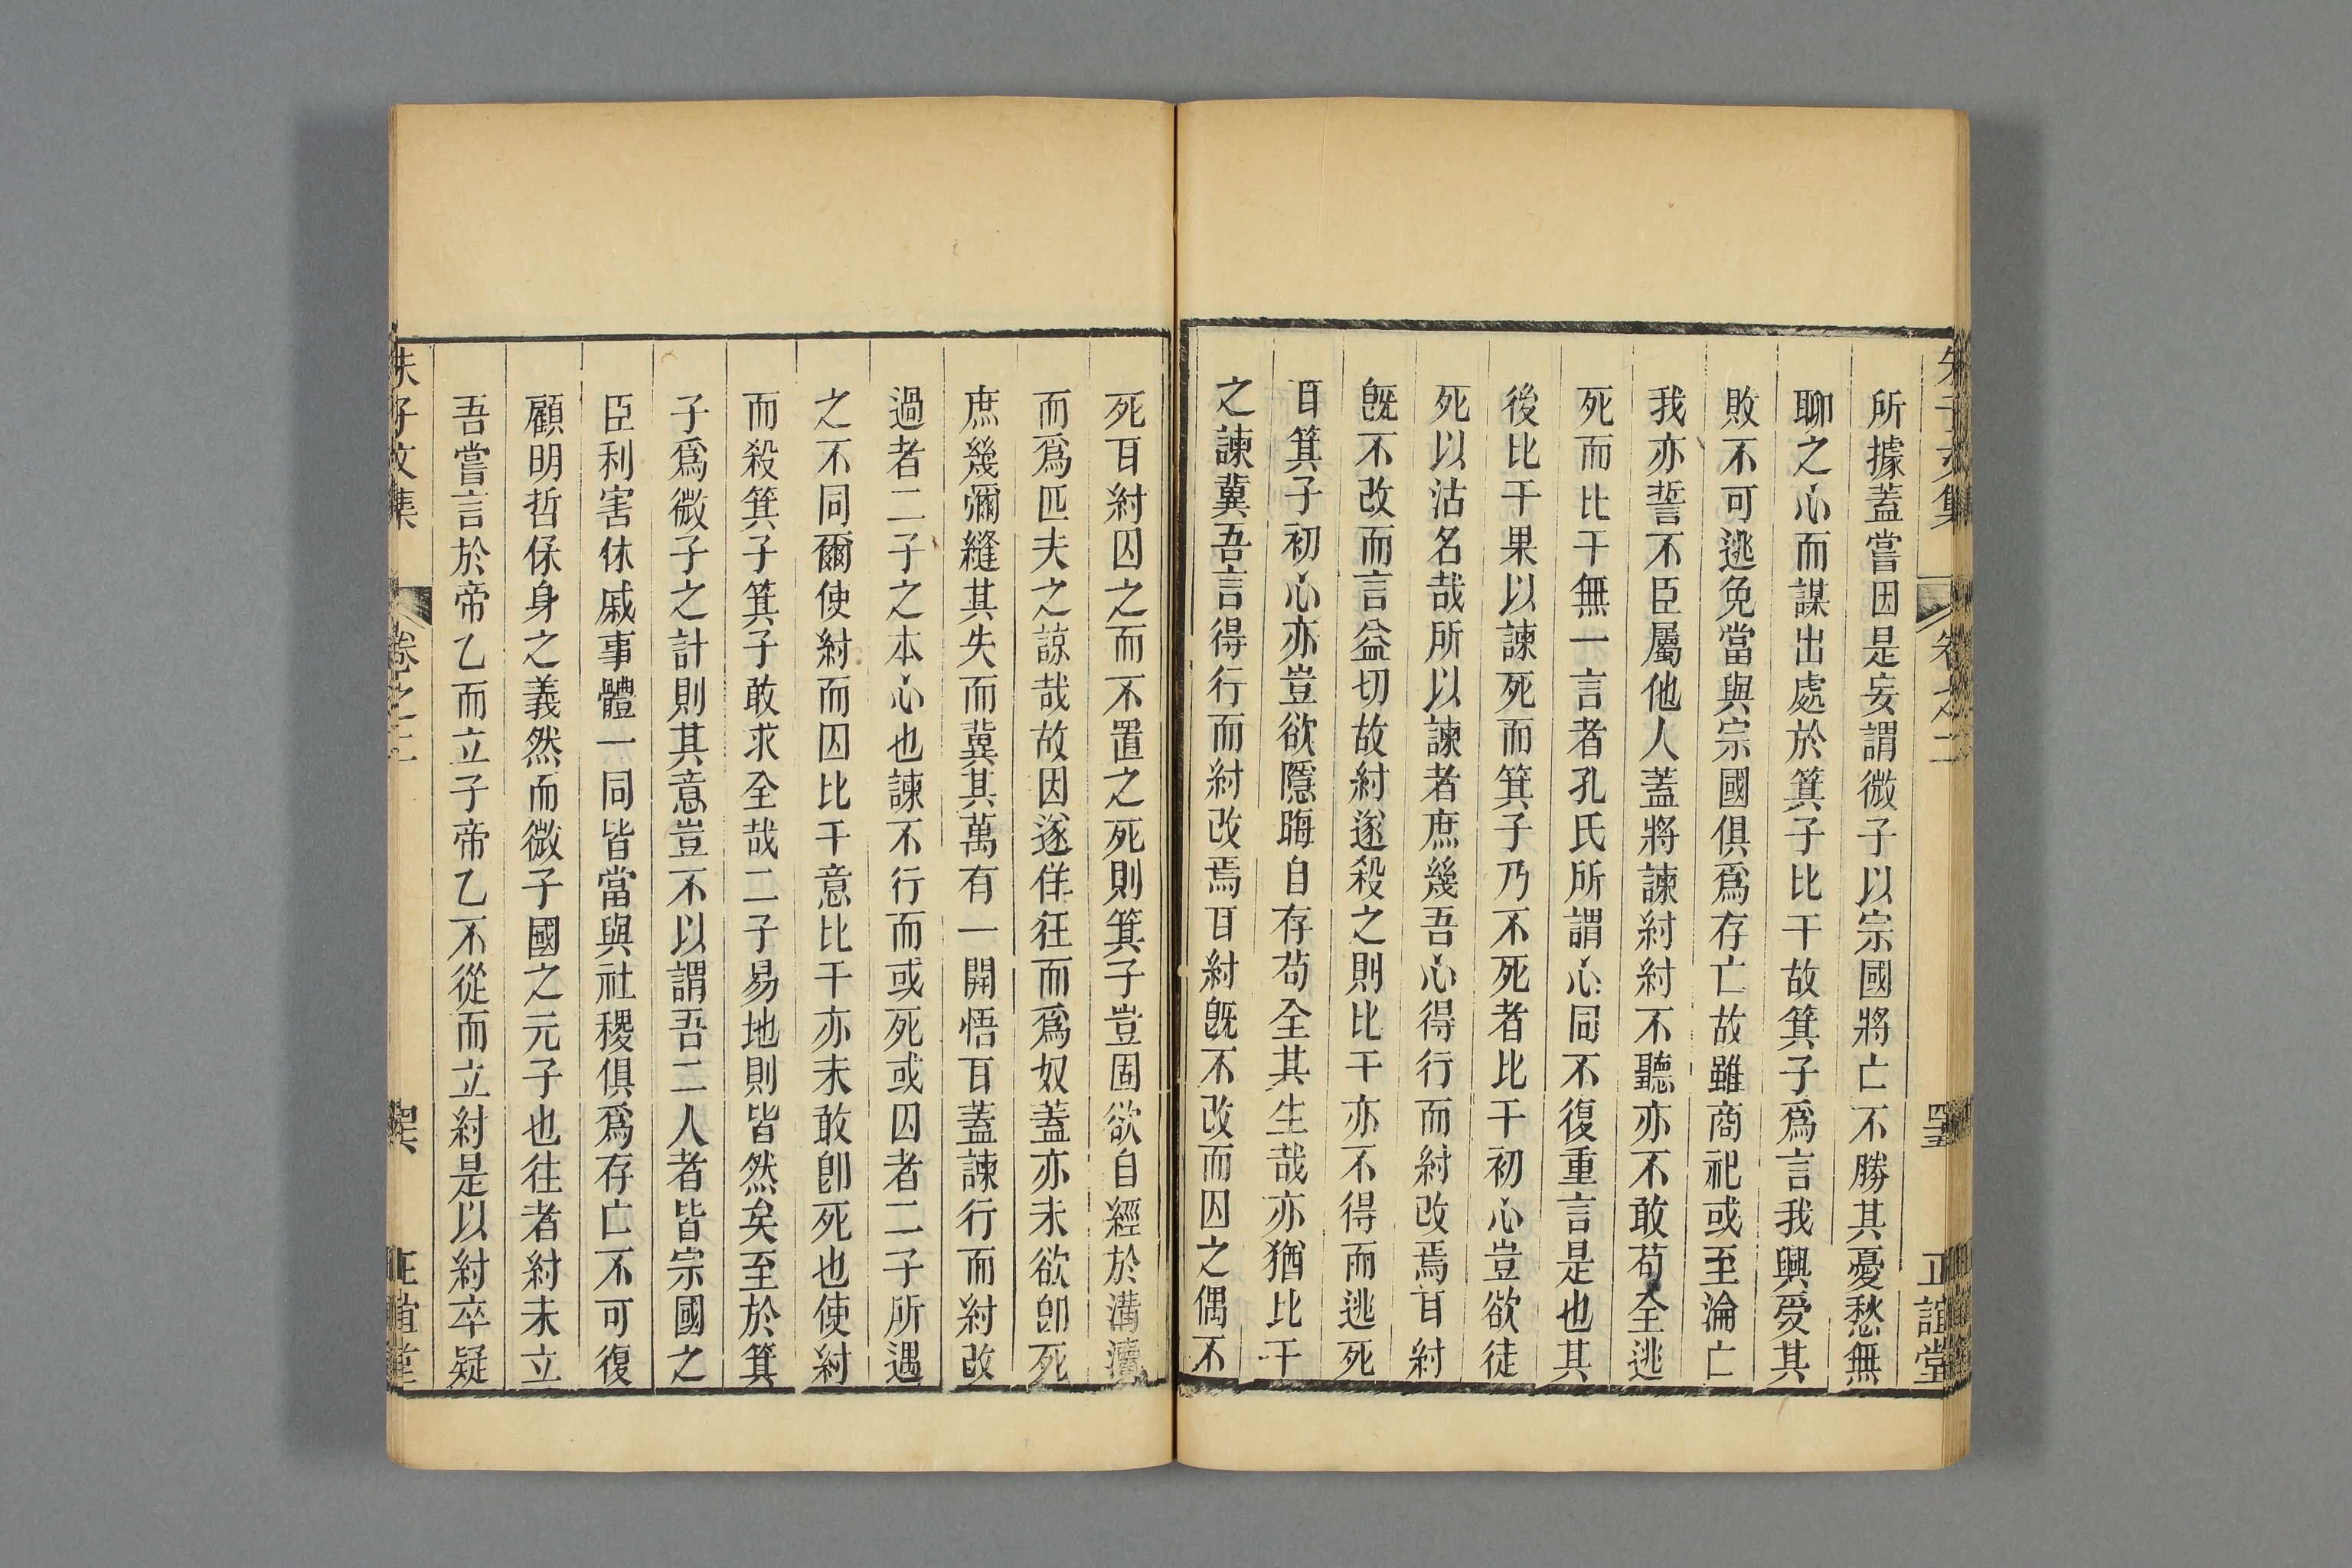 朱子文集 卷之二 四五 正誼堂
所據蓋嘗因是妄謂微子以宗國將亡不勝其憂愁無
聊之心而謀出處於箕子比干故箕子爲言我興受其
敗不可逃免當與宗國俱爲存亡故雖商祀或至淪亡
我亦誓不臣屬他人蓋將諫紂紂不聽亦不敢苟全逃
死而比干無一言者孔氏所謂心同不復重言是也其
後比干果以諫死而箕子乃不死者比干初心豈欲徒
死以沽名哉所以諫者庶幾吾心得行而紂改焉耳紂
旣不改而言益切故紂遂殺之則比干亦不得而逃死
耳箕子初心亦豈欲隱晦自存苟全其生哉亦猶比干
之諫冀吾言得行而紂改焉耳紂旣不改而囚之偶不
死耳紂囚之而不置之死則箕子豈固欲自經於溝瀆
而爲匹夫之諒哉故因遂佯狂而爲奴蓋亦未欲卽死
庶幾彌縫其失而冀其萬有一開悟耳蓋諫行而紂改
過者二子之本心也諫不行而或死或囚者二子所遇
之不同爾使紂而囚比干意比干亦未敢卽死也使紂
而殺箕子箕子敢求全哉二子易地則皆然矣至於箕
子爲微子之計則其意豈不以謂吾二人者皆宗國之
臣利害休戚事體一同皆當與社稷俱爲存亡不可復
顧明哲保身之義然而微子國之元子也往者紂未立
吾嘗言於帝乙而立子帝乙不從而立紂是以紂卒疑
朱子文集 卷之二 正誼堂